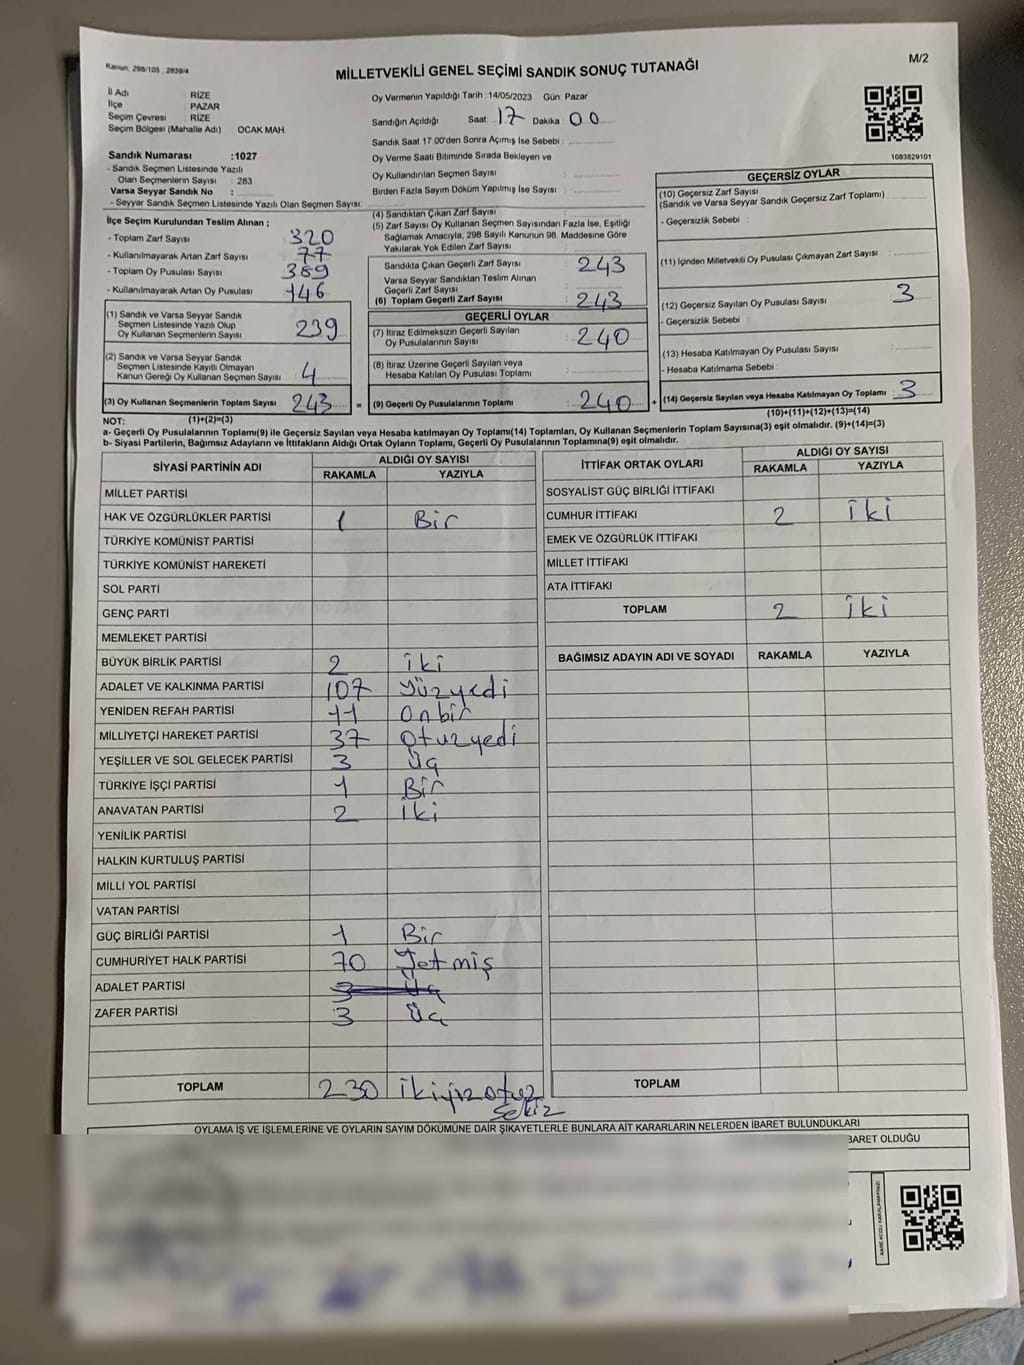 Kanun, 298/105 , 2839/4
M/2
MİLLETVEKİLİ GENEL SEÇİMİ SANDIK SONUÇ TUTANAĞI
İl Adı : RİZE
İlçe : PAZAR
Seçim Çevresi : RİZE
Seçim Bölgesi (Mahalle Adı) : OCAK MAH.
Sandık Numarası :1027
- Sandık Seçmen Listesinde Yazılı
Olan Seçmenlerin Sayısı : 283
Varsa Seyyar Sandık No :
- Seyyar Sandık Seçmen Listesinde Yazılı Olan Seçmen Sayısı:
Oy Vermenin Yapıldığı Tarih :14/05/2023 Gün: Pazar
Sandığın Açıldığı Saat: 17 Dakika 00
Sandık Saat 17.00'den Sonra Açımış İse Sebebi :
Oy Verme Saati Bitiminde Sırada Bekleyen ve
Oy Kullandırılan Seçmen Sayısı :
Birden Fazla Sayım Döküm Yapılmış İse Sayısı :
1083829101
İlçe Seçim Kurulundan Teslim Alınan ;
- Toplam Zarf Sayısı : 320
- Kullanılmayarak Artan Zarf Sayısı : 77
- Toplam Oy Pusulası Sayısı : 389
- Kullanılmayarak Artan Oy Pusulası : 146
(1) Sandık ve Varsa Seyyar Sandık
Seçmen Listesinde Yazılı Olup
Oy Kullanan Seçmenlerin Sayısı : 239
(2) Sandık ve Varsa Seyyar Sandık
Seçmen Listesinde Kayıtlı Olmayan
Kanun Gereği Oy Kullanan Seçmen Sayısı : 4
(3) Oy Kullanan Seçmenlerin Toplam Sayısı : 243 =
(4) Sandıktan Çıkan Zarf Sayısı :
(5) Zarf Sayısı Oy Kullanan Seçmen Sayısından Fazla İse, Eşitliği
Sağlamak Amacıyla, 298 Sayılı Kanunun 98. Maddesine Göre
Yakılarak Yok Edilen Zarf Sayısı :
Sandıkta Çıkan Geçerli Zarf Sayısı : 243
Varsa Seyyar Sandıktan Teslim Alınan
Geçerli Zarf Sayısı :
(6) Toplam Geçerli Zarf Sayısı : 243
GEÇERLİ OYLAR
(7) İtiraz Edilmeksizin Geçerli Sayılan
Oy Pusulalarının Sayısı : 240
(8) İtiraz Üzerine Geçerli Sayılan veya
Hesaba Katılan Oy Pusulası Toplamı :
(9) Geçerli Oy Pusulalarının Toplamı : 240 +
GEÇERSİZ OYLAR
(10) Geçersiz Zarf Sayısı
(Sandık ve Varsa Seyyar Sandık Geçersiz Zarf Toplamı) :
- Geçersizlik Sebebi :
(11) İçinden Milletvekili Oy Pusulası Çıkmayan Zarf Sayısı :
(12) Geçersiz Sayılan Oy Pusulası Sayısı : 3
- Geçersizlik Sebebi :
(13) Hesaba Katılmayan Oy Pusulası Sayısı :
- Hesaba Katılmama Sebebi :
(14) Geçersiz Sayılan veya Hesaba Katılmayan Oy Toplamı : 3
NOT: (1)+(2)=(3) (10)+(11)+(12)+(13)=(14)
a- Geçerli Oy Pusulalarının Toplamı(9) ile Geçersiz Sayılan veya Hesaba Katılmayan Oy Toplamı(14) Toplamları, Oy Kullanan Seçmenlerin Toplam Sayısına(3) eşit olmalıdır. (9)+(14)=(3)
b- Siyasi Partilerin, Bağımsız Adayların ve İttifakların Aldığı Ortak Oyların Toplamı, Geçerli Oy Pusulalarının Toplamına(9) eşit olmalıdır.
SİYASİ PARTİNİN ADI ALDIĞI OY SAYISI
RAKAMLA YAZIYLA
MİLLET PARTİSİ
HAK VE ÖZGÜRLÜKLER PARTİSİ 1 Bir
TÜRKİYE KOMÜNİST PARTİSİ
TÜRKİYE KOMÜNİST HAREKETİ
SOL PARTİ
GENÇ PARTİ
MEMLEKET PARTİSİ
BÜYÜK BİRLİK PARTİSİ 2 iki
ADALET VE KALKINMA PARTİSİ 107 yüzyedi
YENİDEN REFAH PARTİSİ 11 onbir
MİLLİYETÇİ HAREKET PARTİSİ 37 otuzyedi
YEŞİLLER VE SOL GELECEK PARTİSİ 3 Üç
TÜRKİYE İŞÇİ PARTİSİ 1 Bir
ANAVATAN PARTİSİ 2 iki
YENİLİK PARTİSİ
HALKIN KURTULUŞ PARTİSİ
MİLLİ YOL PARTİSİ
VATAN PARTİSİ
GÜÇ BİRLİĞİ PARTİSİ 1 Bir
CUMHURİYET HALK PARTİSİ 70 Yetmiş
ADALET PARTİSİ 3 Üç
ZAFER PARTİSİ 3 Üç
TOPLAM 230 ikiyüzotuz
sekiz
İTTİFAK ORTAK OYLARI ALDIĞI OY SAYISI
RAKAMLA YAZIYLA
SOSYALİST GÜÇ BİRLİĞİ İTTİFAKI
CUMHUR İTTİFAKI 2 iki
EMEK VE ÖZGÜRLÜK İTTİFAKI
MİLLET İTTİFAKI
ATA İTTİFAKI
TOPLAM 2 iki
BAĞIMSIZ ADAYIN ADI VE SOYADI RAKAMLA YAZIYLA
TOPLAM
OYLAMA İŞ VE İŞLEMLERİNE VE OYLARIN SAYIM DÖKÜMÜNE DAİR ŞİKAYETLERLE BUNLARA AİT KARARLARIN NELERDEN İBARET BULUNDUKLARI
BARET OLDUĞU
KARE KODU KARALAMAYINIZ!